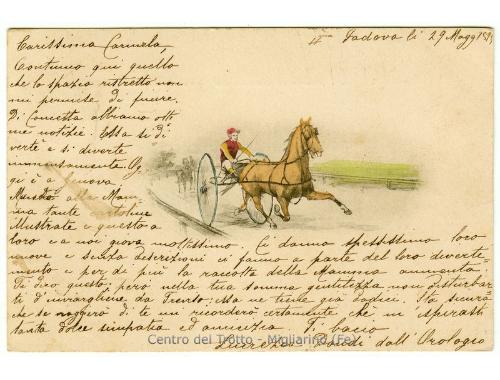 Padova li 29 Magg 189
Carissima Carmela,
Continuo qui quello
che lo spazio ristretto non
mi permise di finire.
Di Concetta abbiamo otti
me notizie. Essa si di
verte e si diverte
immensamente. Og
gi è a Genova
alla Mam
ma tante cartoline
illustrate e questo a
loro e a noi giova moltissimo. Ci danno spessissimo loro
nuove e senza descrizioni ci fanno a parte del loro diverti
mento e per di più la raccolta della Mamma aumenta.
Ti dico questo, però nella tua somma gentilezza non disturbar
ti d'inviarghene da Trento, essa ne tiene già dodici. Sta sicura
che se non di te mi ricorderò certamente che m'ispirasti
tanta dolce simpatia ed amicizia. Ti bacio
Lucrezia Dondi dall'Orologio
Centro del Trotto - Migliarino (Fe)